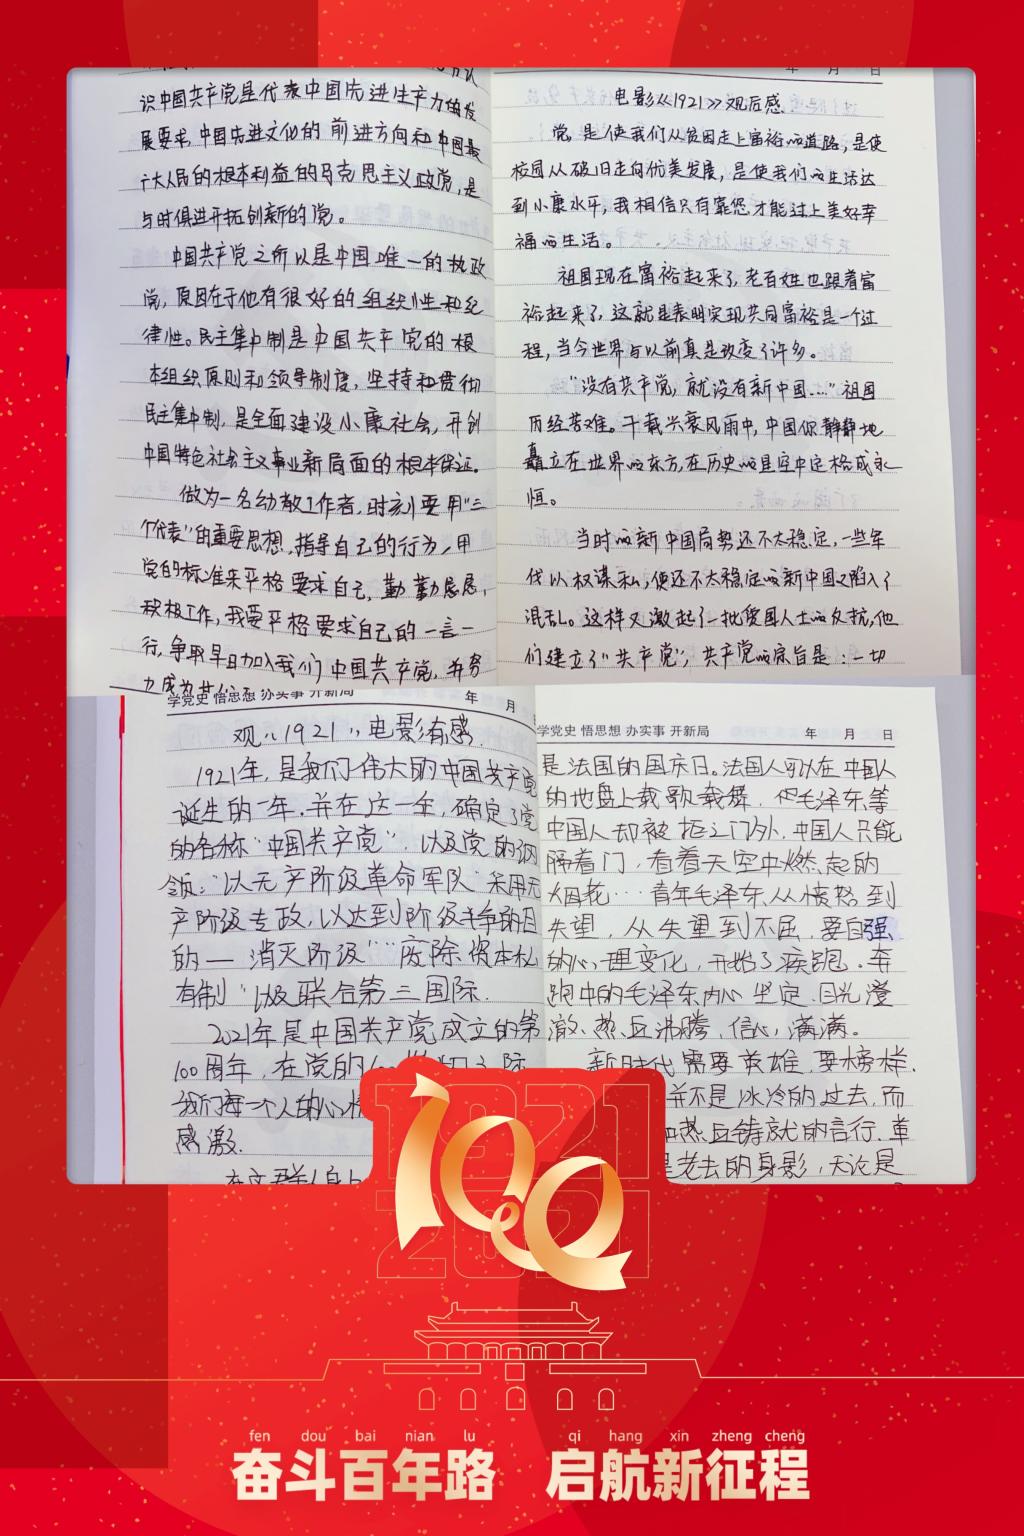 识中国共产党是代表中国先进生产力的发
展要求,中国先进文化的前进方向和中国最
广大人民的根本利益的马克思主义政党,是
与时俱进开拓创新的党。
中国共产党之所以是中国唯一的执政
党,原因在于他有很好的组织性和纪
律性。民主集中制是中国共产党的根
本组织原则和领导制度,坚持和贯彻
民主集中制,是全面建设小康社会,开创
中国特色社会主义事业新局面的根本保证。
做为一名幼教工作者,时刻要用“三
个代表”的重要思想,指导自己的行为,用
党的标准来严格要求自己,勤勤恳恳,
积极工作,我要严格要求自己的一言一
行,争取早日加入我们中国共产党,并努
力成为
年 月 日
电影《1921》观后感
党,是使我们从贫困走上富裕的道路,是使
校园从破旧走向优美发展,是使我们的生活达
到小康水平,我相信只有靠您才能过上美好幸
福的生活。
祖国现在富裕起来了,老百姓也跟着富
裕起来了,这就是表明实现共同富裕是一个过
程,当今世界与以前真是改变了许多。
“没有共产党,就没有新中国....”祖国
历经苦难。千载兴衰风雨中,中国你静静地
矗立在世界的东方,在历史的星空中定格成永
恒。
当时的新中国局势还不太稳定,一些年
代以权谋私,使还不太稳定的新中国又陷入了
混乱。这样又激起了一批爱国人士的反抗,他
们建立了“共产党”,共产党的宗旨是:一切
学党史 悟思想 办实事 开新局
年 月
观《1921》电影有感
1921年,是我们伟大的中国共产党
诞生的一年.并在这一年,确定了党
的名称“中国共产党”.以及党的纲
领:“以无产阶级革命军队”采用无
产阶级专政,以达到阶级斗争的目
的—消灭阶级”“废除资本私
有制”以及联合第三国际.
2021年是中国共产党成立的第
100周年,在党的100
我们每一个人的心情
感激.
学党史 悟思想 办实事 开新局
年 月 日
是法国的国庆日。法国人可以在中国人
的地盘上载歌载舞,但毛泽东等
中国人却被拒之门外.中国人只能
隔着门,看着天空中燃起的
烟花…青年毛泽东从愤怒到
失望,从失望到不屈,要自强
的心理变化,开始了疾跑.奔
跑中的毛泽东内心坚定.目光澄
澈、热血沸腾,信心满满。
新时代需要英雄,要榜样.
并不是冰冷的过去,而
热血铸就的言行.革
是老去的身影,无论是
1921
100
2021
fen dou bai nian lu qi hang xin zheng cheng
奋斗百年路 启航新征程